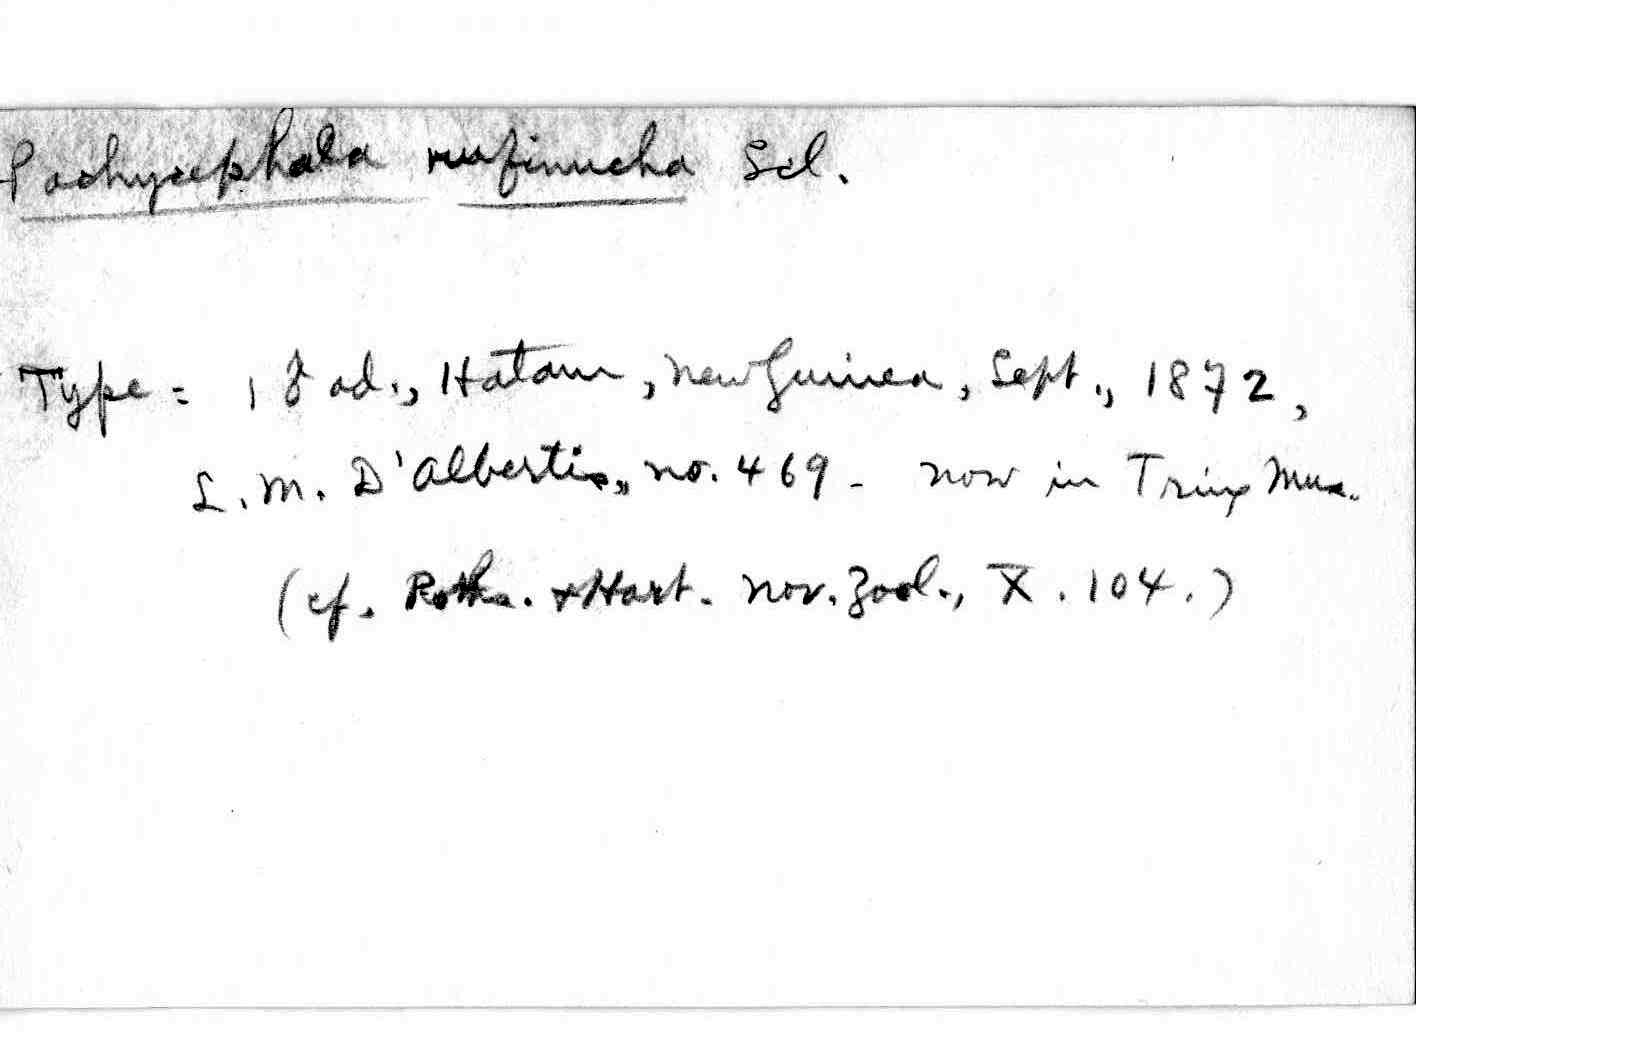 Pachycephala rufinucha Scl.
Type = 1 ♂ ad., Hatam, New Guinea, Sept., 1872,
L. M. D'Albertis, no. 469 - now in Tring Mus.
(cf. Roths. & Hart. Nov. Zool., X. 104.)